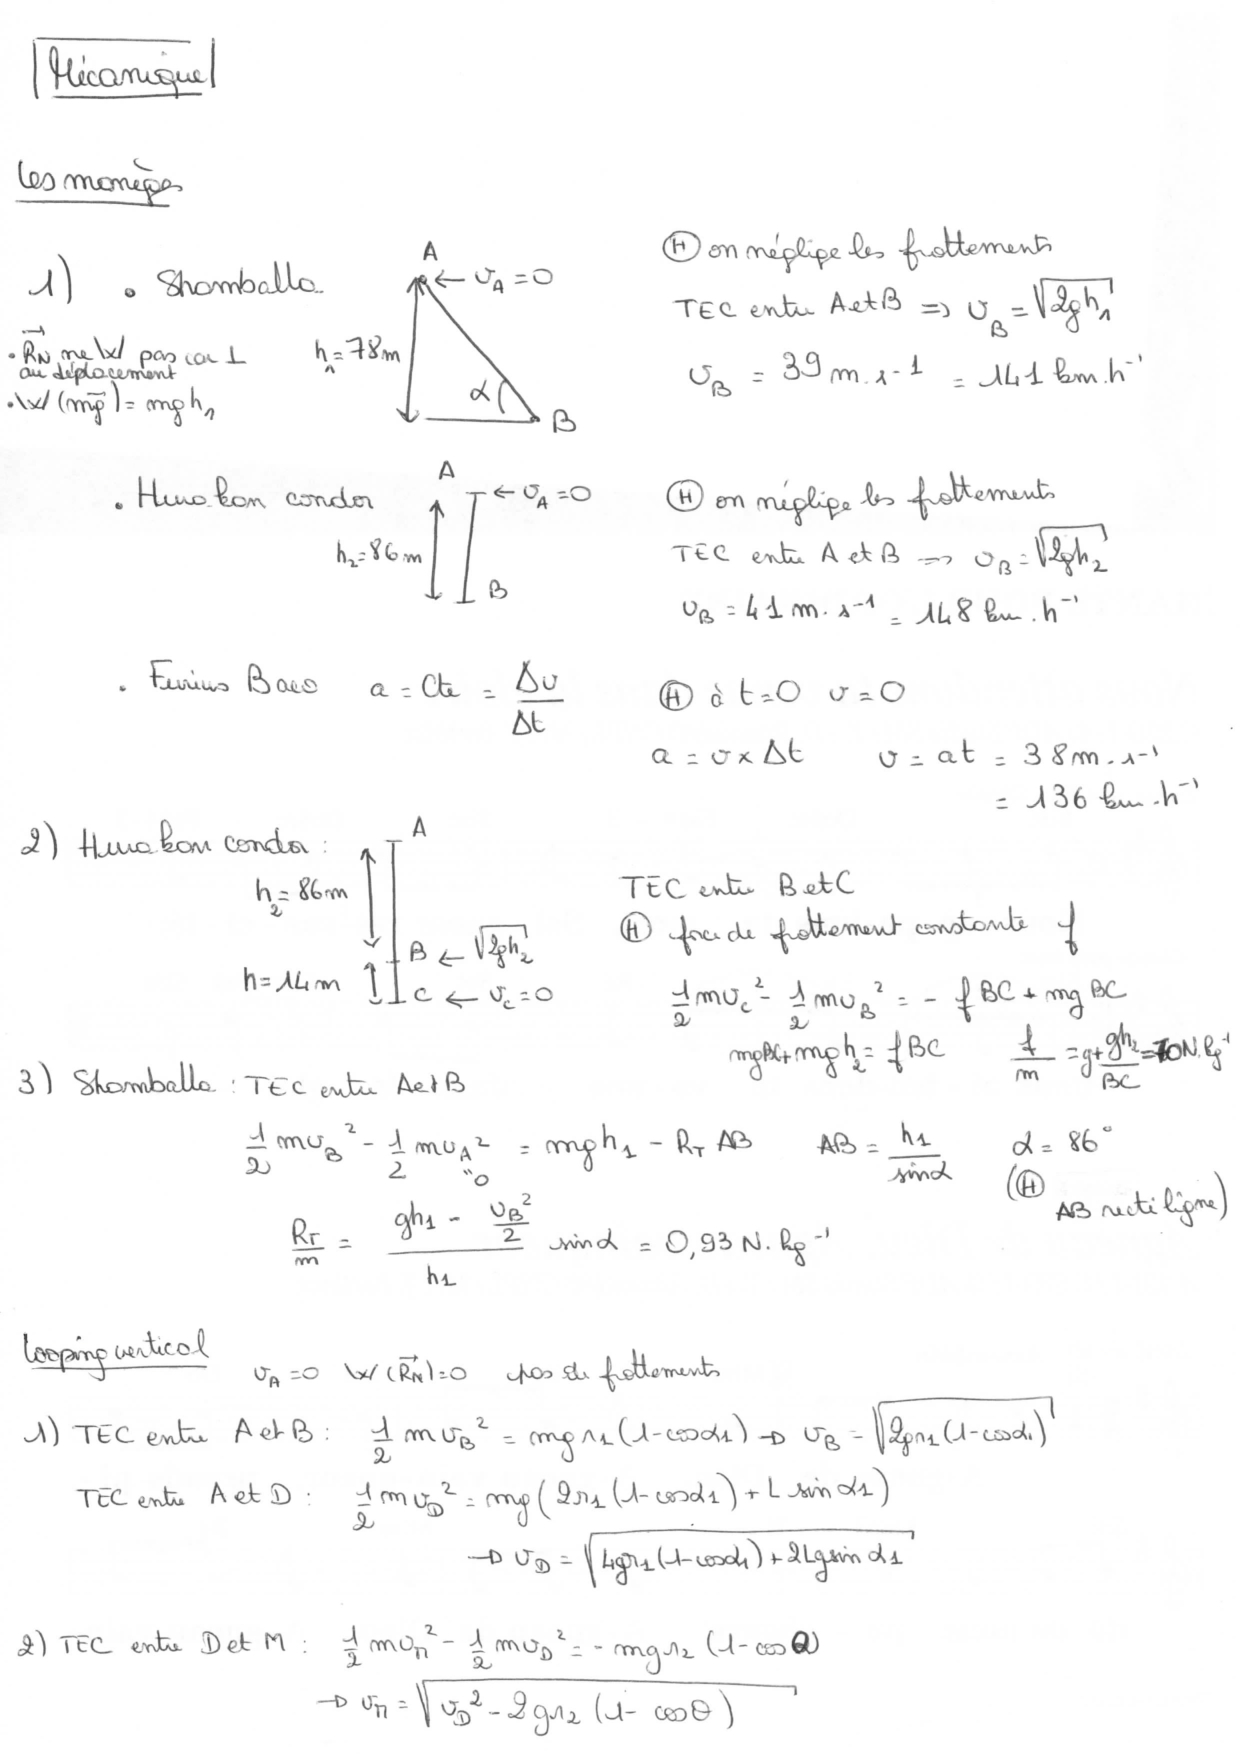 Mécanique
Les manèges
1) • Shamballa
A
← v_A = 0
h₁ = 78 m
α
B
• R⃗_N ne W pas car ⊥
au déplacement
• W(mg⃗) = mgh₁
Ⓗ on néglige les frottements
TEC entre A et B ⇒ v_B = √(2gh₁)
v_B = 39 m.s⁻¹ = 141 km.h⁻¹
• Hurakan condor
A
← v_A = 0
h₂ = 86 m
B
Ⓗ on néglige les frottements
TEC entre A et B ⇒ v_B = √(2gh₂)
v_B = 41 m.s⁻¹ = 148 km.h⁻¹
• Furius Baco a = Cte = Δv/Δt Ⓗ à t=0 v=0
a = v × Δt v = at = 38 m.s⁻¹
= 136 km.h⁻¹
2) Hurakan condor :
A
h₂ = 86 m
B ← √(2gh₂)
h = 14 m
C ← v_C = 0
TEC entre B et C
Ⓗ force de frottement constante f
1/2 mv_C² - 1/2 mv_B² = - f BC + mg BC
mgBC + mgh₂ = f BC f/m = g + gh₂/BC = 70 N.kg⁻¹
3) Shamballa : TEC entre A et B
1/2 mv_B² - 1/2 mv_A² = mgh₁ - R_T AB AB = h₁/sinα α = 86°
"0
(Ⓗ AB rectiligne)
R_T/m = (gh₁ - v_B²/2)/h₁ sinα = 0,93 N.kg⁻¹
Looping vertical
v_A = 0 W(R⃗_N) = 0 pas de frottements
1) TEC entre A et B : 1/2 mv_B² = mgr₁(1-cosα₁) → v_B = √(2gr₁(1-cosα₁))
TEC entre A et D : 1/2 mv_D² = mg(2r₁(1-cosα₁) + L sinα₁)
→ v_D = √(4gr₁(1-cosα₁) + 2Lgsinα₁)
2) TEC entre D et M : 1/2 mv_M² - 1/2 mv_D² = - mgr₂ (1-cosθ)
→ v_M = √(v_D² - 2gr₂ (1-cosθ))